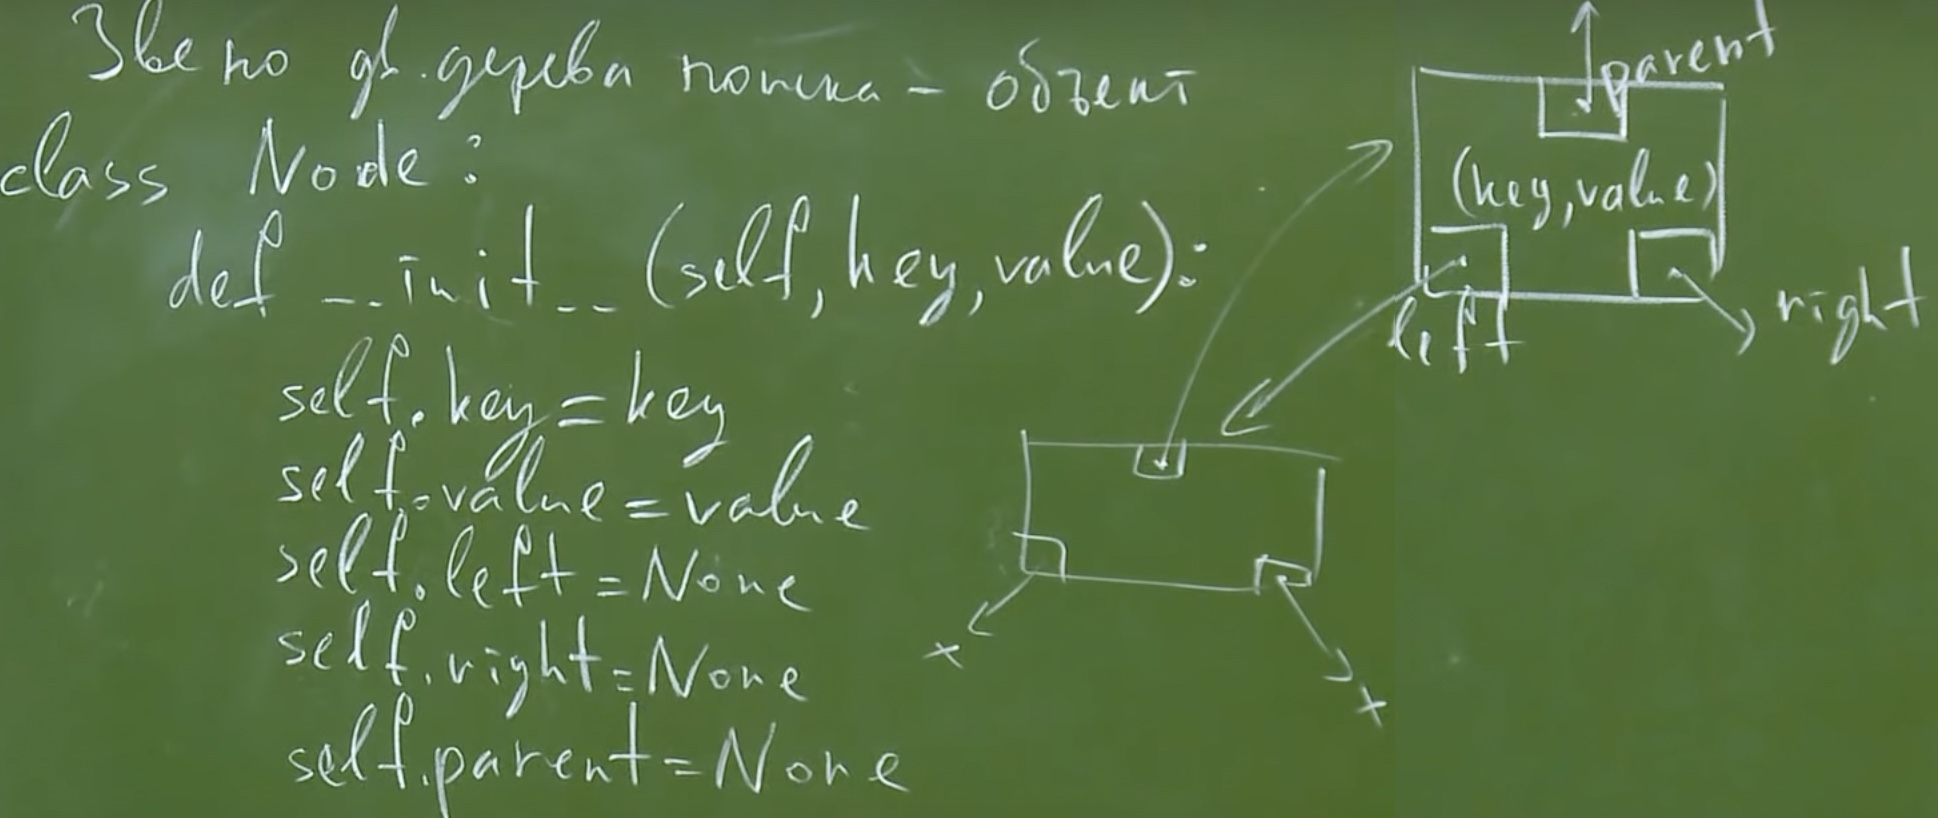 Звено дв. дерева поиска – объект
class Node:
def __init__ (self, key, value):
self.key = key
self.value = value
self.left = None
self.right = None
self.parent = None
parent
(key, value)
left
right